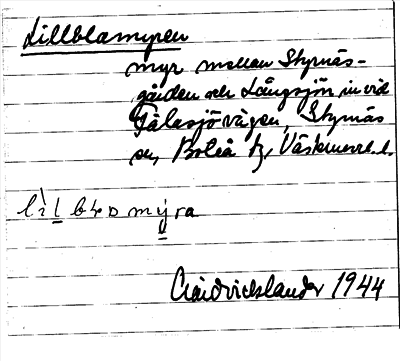 Lillblamyren
myr mellan Styrnäs-
gården och Långsjön, in vid
Tälasjövägen, Styrnäs
sn, Boteå tg, Västernorrl. l.
lìl blo mýra
1944